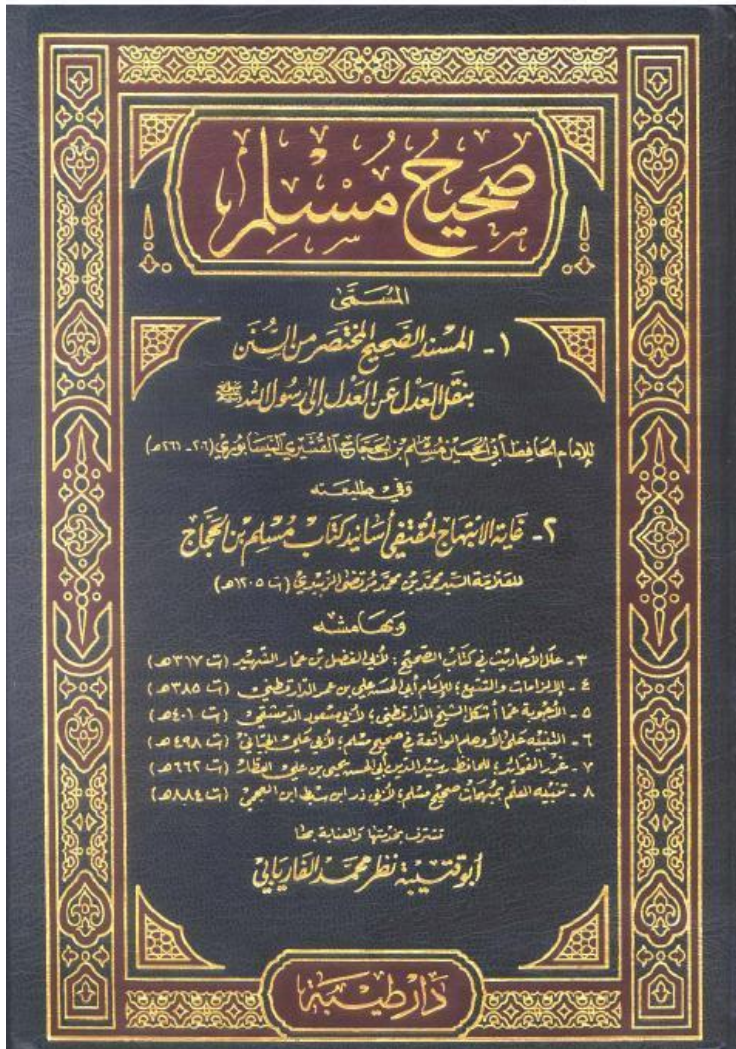 صَحِيحُ مُسْلِم
المُسَمَّى
١ - المسند الصحيح المختصر من السنن
بنقل العدل عن العدل إلى رسول الله ﷺ
للإمام الحافظ أبي الحسين مسلم بن الحجاج القشيري النيسابوري (٢٠٦ - ٢٦١ هـ)
وفي طليعته
٢ - غاية الابتهاج لمقتفي أسانيد كتاب مسلم بن الحجاج
للعلامة السيد محمد بن محمد مرتضى الزبيدي (ت ١٢٠٥ هـ)
وبهامشه
٣ - علل الأحاديث في كتاب الصحيح؛ لأبي الفضل بن عمار الشهيد (ت ٣١٧ هـ)
٤ - الإلزامات والتتبع؛ للإمام أبي الحسن علي بن عمر الدارقطني (ت ٣٨٥ هـ)
٥ - الأجوبة عما أشكل الشيخ الدارقطني؛ لأبي مسعود الدمشقي (ت ٤٠١ هـ)
٦ - التنبيه على الأوهام الواقعة في صحيح مسلم؛ لأبي علي الجياني (ت ٤٩٨ هـ)
٧ - غرر الفوائد؛ للحافظ رشيد الدين أبي الحسين يحيى بن علي العطار (ت ٦٦٢ هـ)
٨ - تنبيه المعلم بمبهمات صحيح مسلم؛ لأبي ذر ابن سبط ابن العجمي (ت ٨٨٤ هـ)
تشرف بخدمتها والعناية بها
أبو قتيبة نظر محمد الفاريابي
دار طيبة